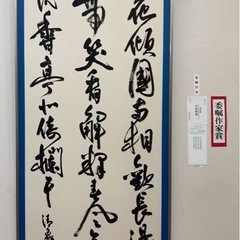 花傾國兩相歡長得
帶笑看解釋春風
香亭北倚欄干
委嘱作家賞